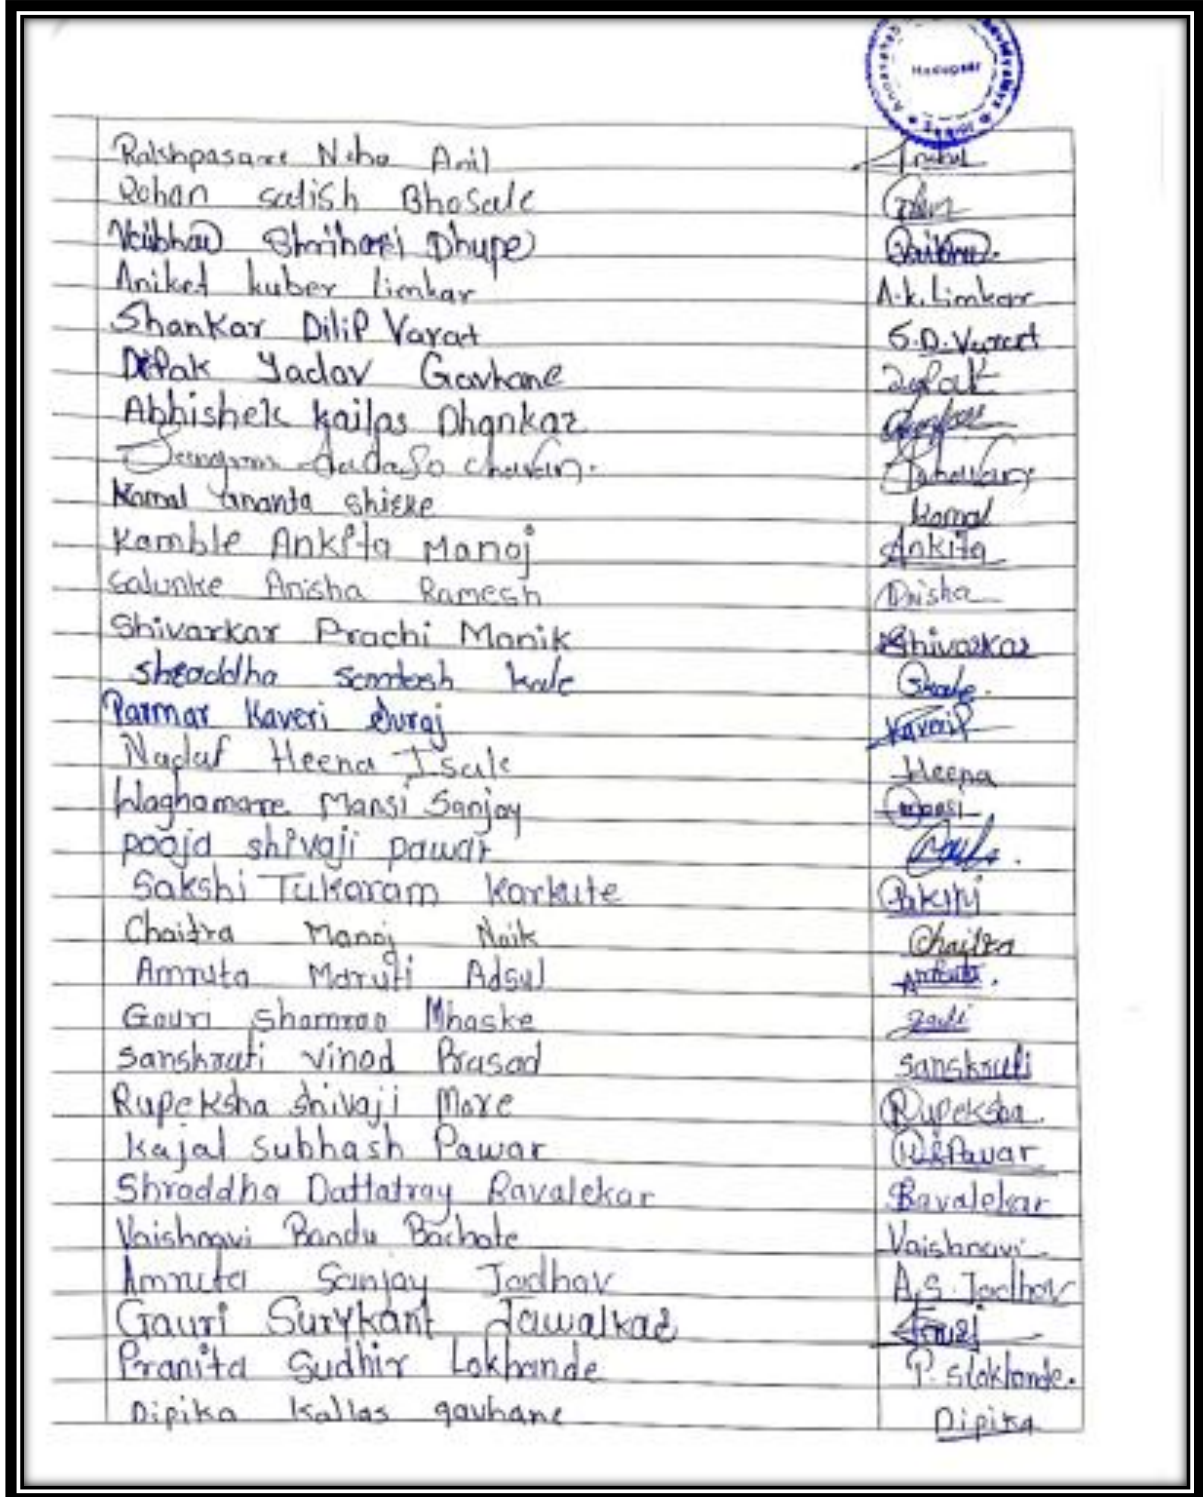 Hadapsar
Rakshpasare Neha Anil
Rohan satish Bhosale
Vaibhav Shrihari Dhupe Vaibhav.
Aniket kuber limkar A.k.Limkar
Shankar Dilip Varat S.D.Varat
Dipak Yadav Gavhane
Abhishek kailas Dhankar
Sangram dadaso chavan.
Komal ananta shirke Komal
Kamble Ankita Manoj Ankita
Salunke Anisha Ramesh Anisha
Shivarkar Prachi Manik Shivarkar
shraddha santosh kale
Parmar Kaveri Suraj
Nadaf Heena Isak Heena
Waghamare Mansi Sanjay Mansi
pooja shivaji pawar
Sakshi Tukaram Karkute Sakshi
Chaitra Manoj Naik Chaitra
Amruta Maruti Adsul Amruta.
Gauri Shamrao Mhaske
Sanskruti Vinod Prasad Sanskruti
Rupeksha Shivaji More Rupeksha.
Kajal Subhash Pawar
Shraddha Dattatray Ravalekar Ravalekar
Vaishnavi Bandu Bachate Vaishnavi.
Amruta Sanjay Jadhav A.S.Jadhav
Gauri Surykant Jawalkar
Pranita Sudhir Lokhande P.Slokhande.
Dipika Kallas gavhane Dipika